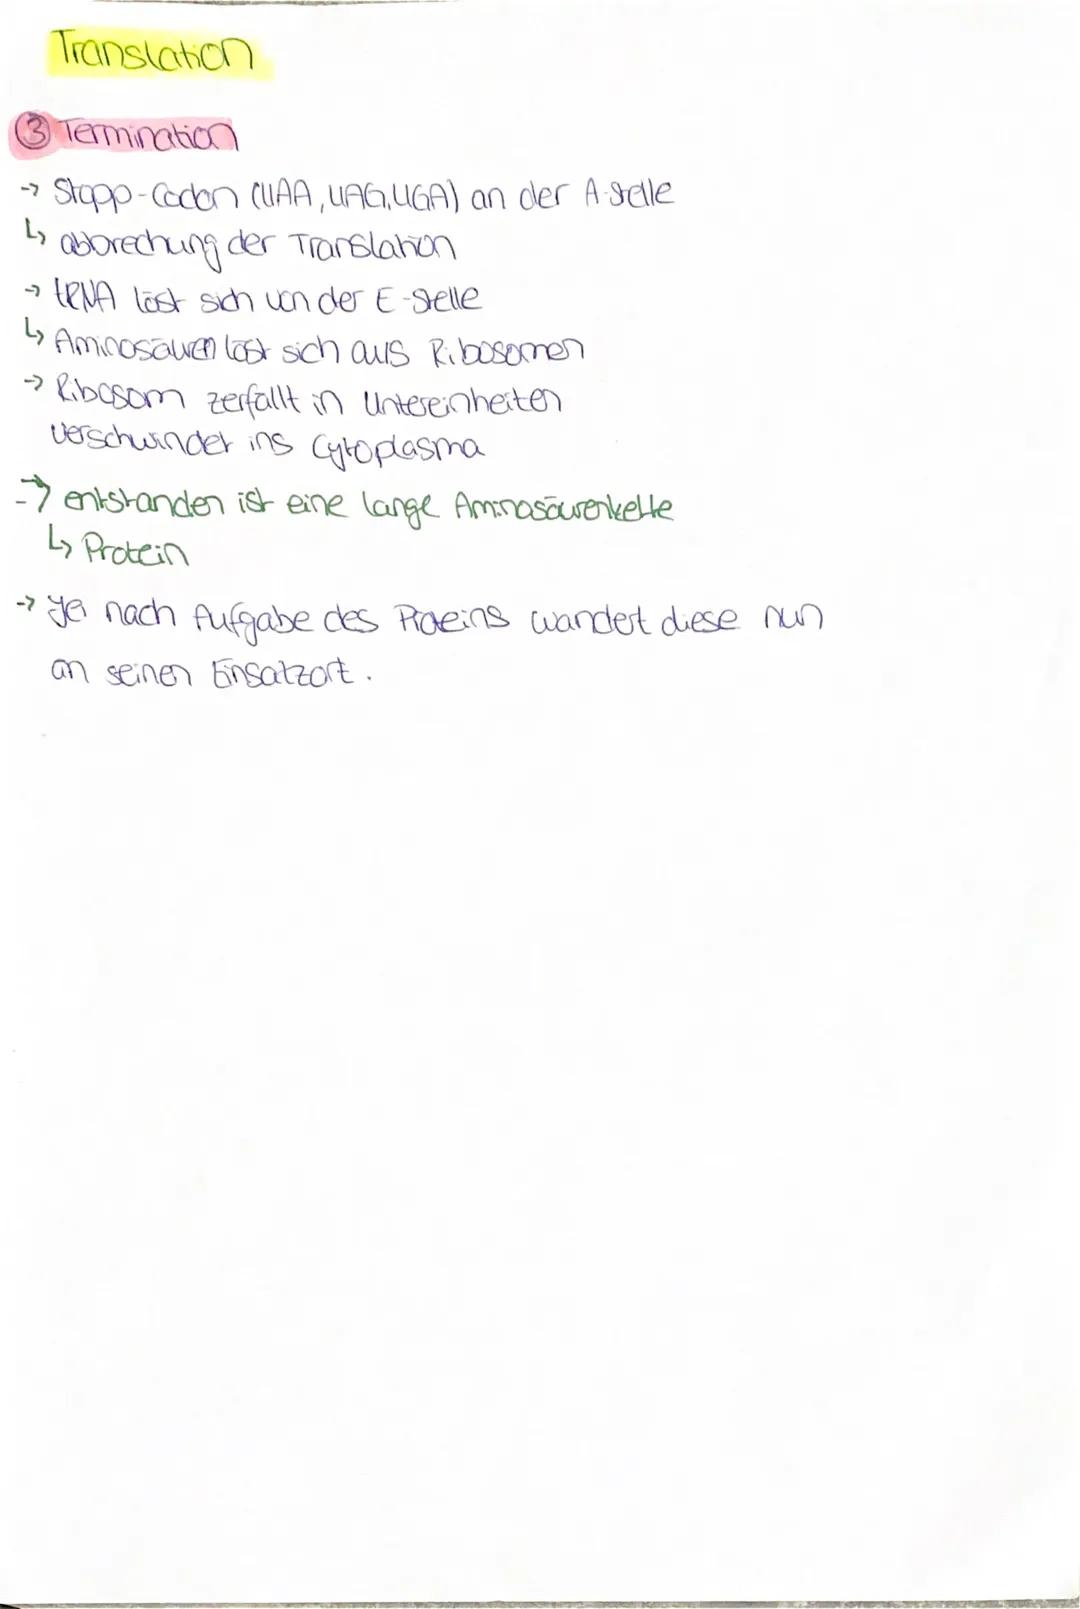 Translation
③ Termination
→ Stopp-Codon (UAA, UAG, UGA) an der A-Stelle
↳ abbrechung der Translation
→ tRNA löst sich von der E-Stelle
↳ Aminosäuren löst sich aus Ribosomen
→ Ribosom zerfällt in Untereinheiten
verschwindet ins Cytoplasma
→ entstanden ist eine lange Aminosäurenkette
↳ Protein
→ Je nach Aufgabe des Proteins wandert diese nun
an seinen Einsatzort.